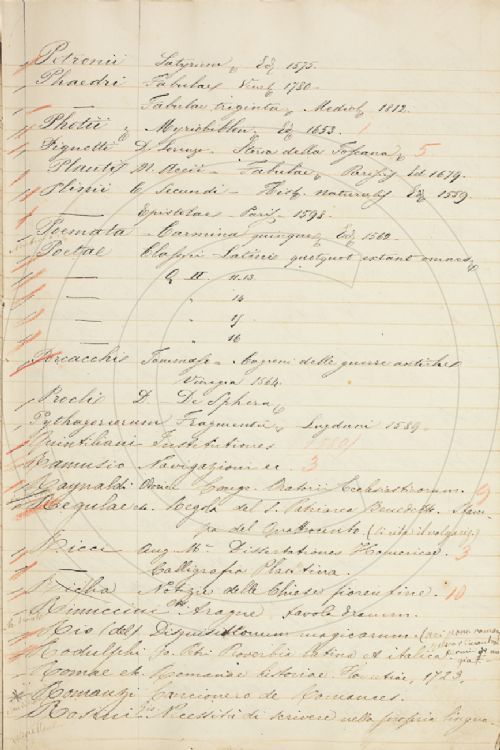 Petronii Satyricon Ed. 1575.
Phaedri Fabulae Vienn. 1780.
— Fabulae triginta, Mediol. 1812.
Photii Myriobiblon, Ed. 1653. 1
Pignotti D. Lorenzo Storia della Toscana 5
Plauti M. Accii Fabulae, Parisiis Ed. 1679.
Plinii C. Secundi Hist. naturalis Ed. 1559
— Epistolae Paris, 1598.
Poemata Carmina quinque Ed. 1562.
Poetae Classici Latinis quotquot extant omnes
— G II 11.13
— " 14
— " 15
— " 16
Porcacchi Tommaso Cagioni delle guerre antiche
Vinegia 1564.
Procli D. De Sphera
Pythagoreorum Fragmenta, Lugduni 1589.
Quintiliani Institutiones
Ramusio Navigazioni ec. 3
Raynaldi Congr. Oratorii Ecclesiasticorum. 9
Regulae etc. Regola del S. Patriarca Benedetto. Stam-
pa del Quattrocento
Ricci Aug. M. Dissertationes Homericae. 3
— Calligrafia Plautina.
Richa Notizie delle Chiese fiorentine. 10
Rinuccini favola Dramm.
Rio (del) Disquisitionum magicarum
Rodulphi Proverbia latina et italica
Romae etc. Romanae historiae Florentiae, 1723.
Romanzi Canzionero de Romances.
Rosini Necessità di scrivere nella propria lingua.